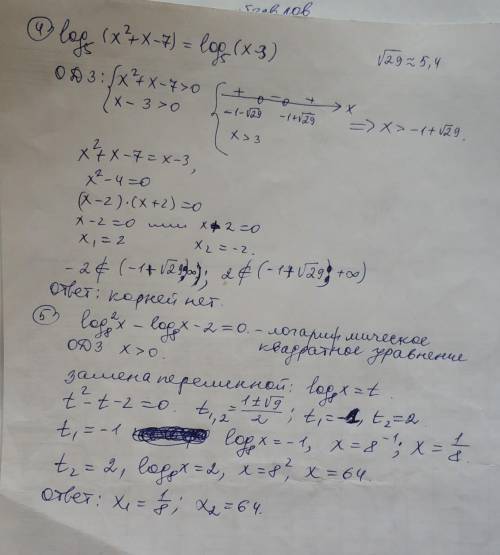 ④ log₅(x²+x-7) = log₅(x-3)
√29 ≈ 5,4
ОДЗ: { x²+x-7>0
x-3>0
{ + o - o + x
-1-√29 -1+√29
x>3
=> x > -1+√29.
x²+x-7 = x-3,
x²-4=0
(x-2)·(x+2)=0
x-2=0 или x+2=0
x₁=2 x₂=-2.
-2∉(-1+√29;+∞); 2∉(-1+√29;+∞)
ответ: корней нет.
⑤ log₈²x - log₈x - 2 = 0. - логарифмическое
ОДЗ x>0. квадратное уравнение
замена переменной: log₈x = t.
t²-t-2=0. t₁,₂ = (1±√9)/2; t₁=-1, t₂=2.
t₁=-1 log₈x=-1, x=8⁻¹; x=1/8.
t₂=2, log₈x=2, x=8², x=64.
ответ: x₁=1/8; x₂=64.